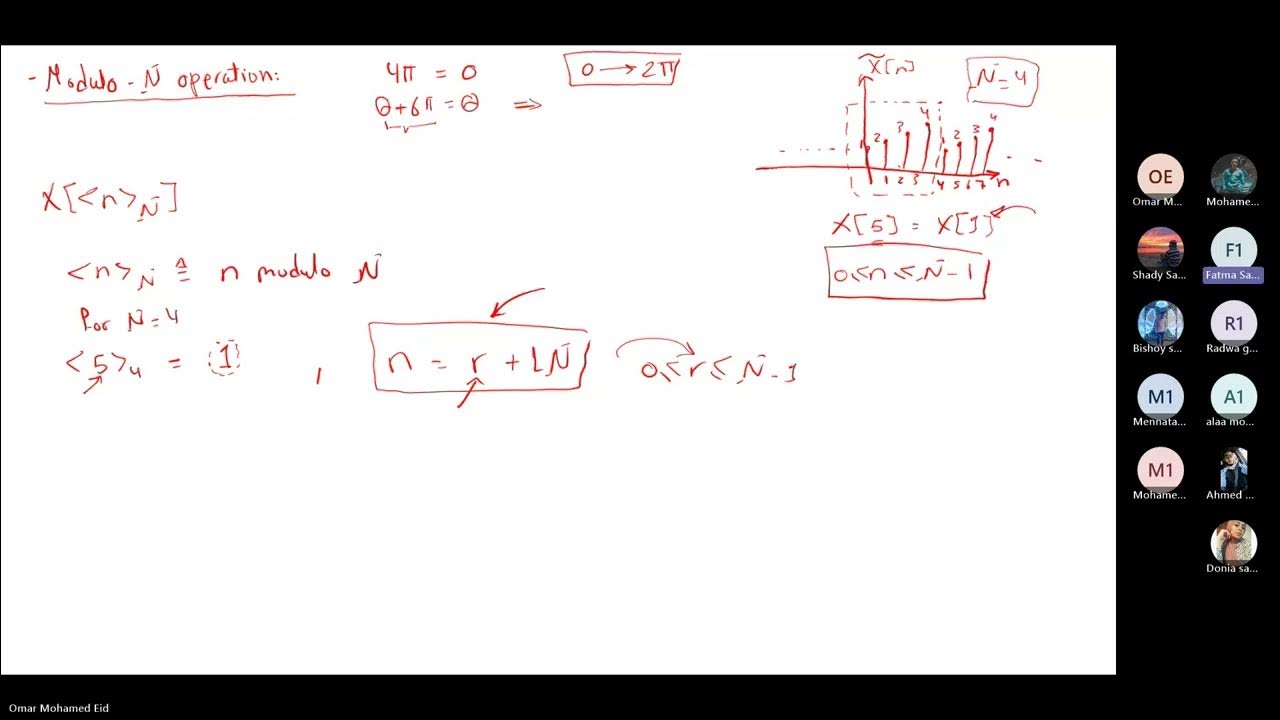 - Modulo - N operation:
4π = 0
0 → 2π
θ + 6π = θ ⇒
x̃[n]
N = 4
1 2 3 4 1 2 3 4
1 2 3 4 5 6 7 n
x[<n>_N]
x[5] = x[1]
0 ≤ n ≤ N - 1
<n>_N ≜ n modulo N
for N = 4
<5>_4 = 1 , n = r + LN 0 ≤ r ≤ N - 1
OE
Omar M...
Mohame...
Shady Sa...
F1
Fatma Sa...
Bishoy s...
R1
Radwa g...
M1
Mennata...
A1
alaa mo...
M1
Mohame...
Ahmed ...
Donia sa...
Omar Mohamed Eid